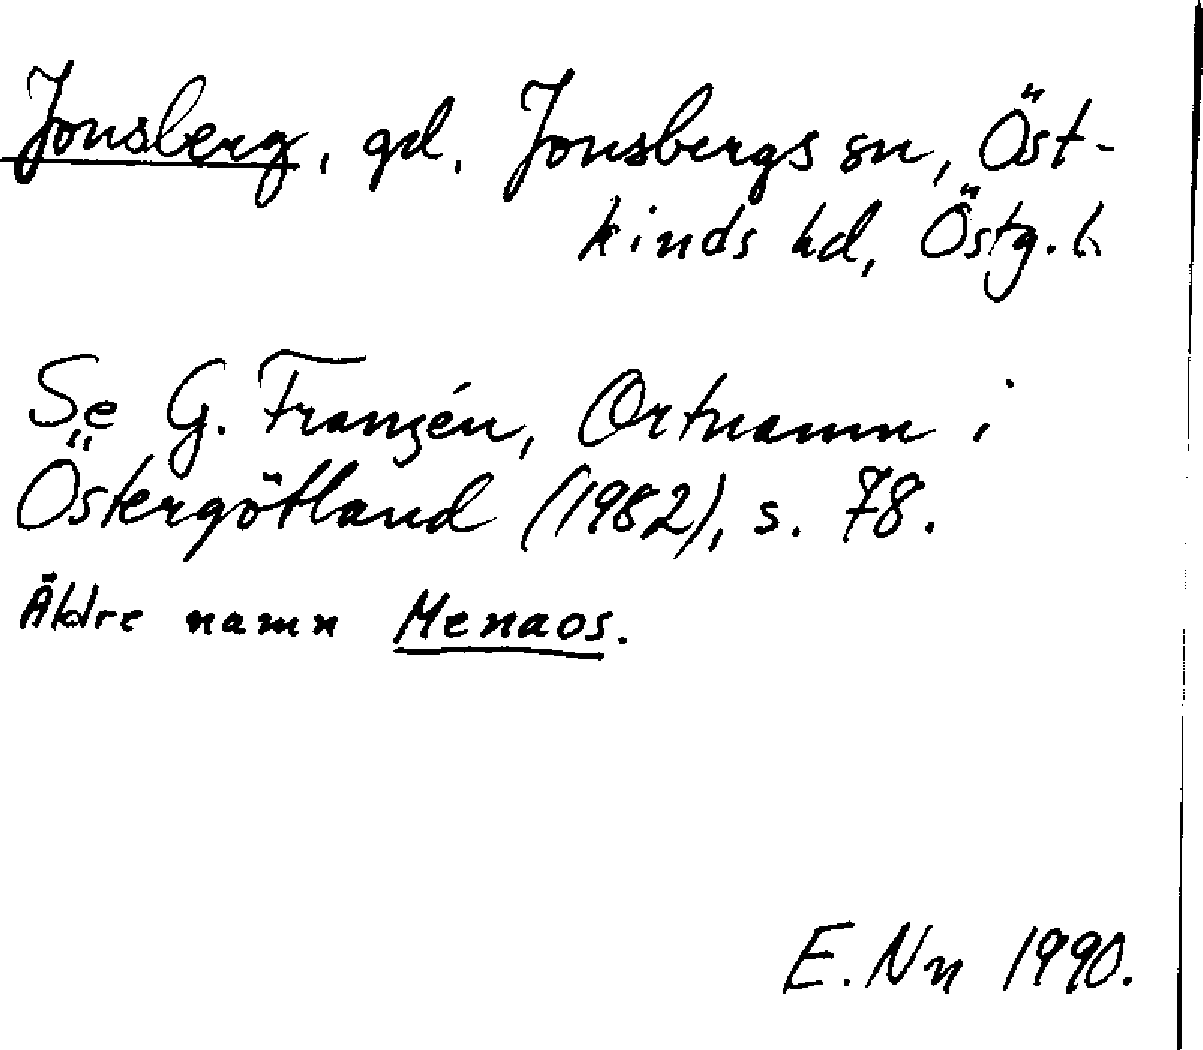 Jonsberg, gd, Jonsbergs sn, Öst-
kinds hd, Östg. l.
Se G. Franzén, Ortnamn i
Östergötland (1982), s. 78.
Äldre namn Menaos.
E. Nn 1990.